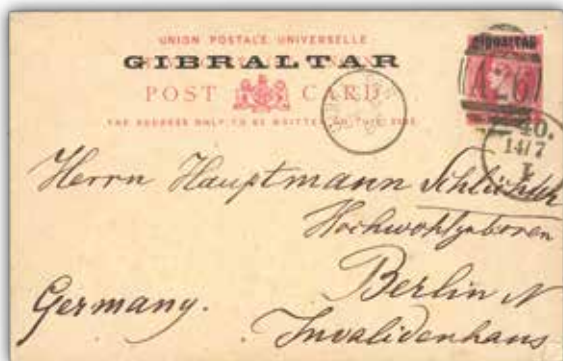 UNION POSTALE UNIVERSELLE
GIBRALTAR
POST CARD
THE ADDRESS ONLY TO BE WRITTEN ON THIS SIDE
GIBRALTAR
A26
40.
14/7
I
Herrn Hauptmann
Hochwohlgeboren
Berlin N
Germany.
Invalidenhaus